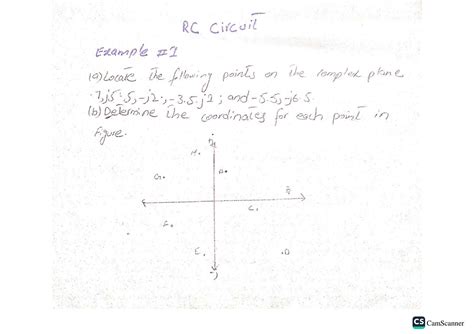 RC Circuit
Example #1
(a) Locate the following points on the complex plane
7,j5; 5,-j2; -3.5,j1; and -5.5,-j6.5.
(b) Determine the coordinates for each point in
Figure.
j
H.
G.
A.
C.
F.
E.
.D
-j
CS CamScanner